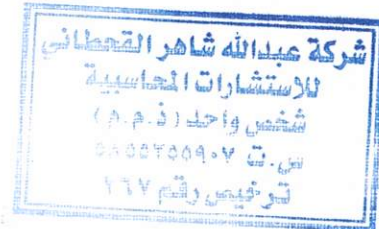 شركة عبدالله شاهر القحطاني
للاستشارات المحاسبية
شخص واحد (ذ.م.م)
س.ت
ترخيص رقم ٦٦٧